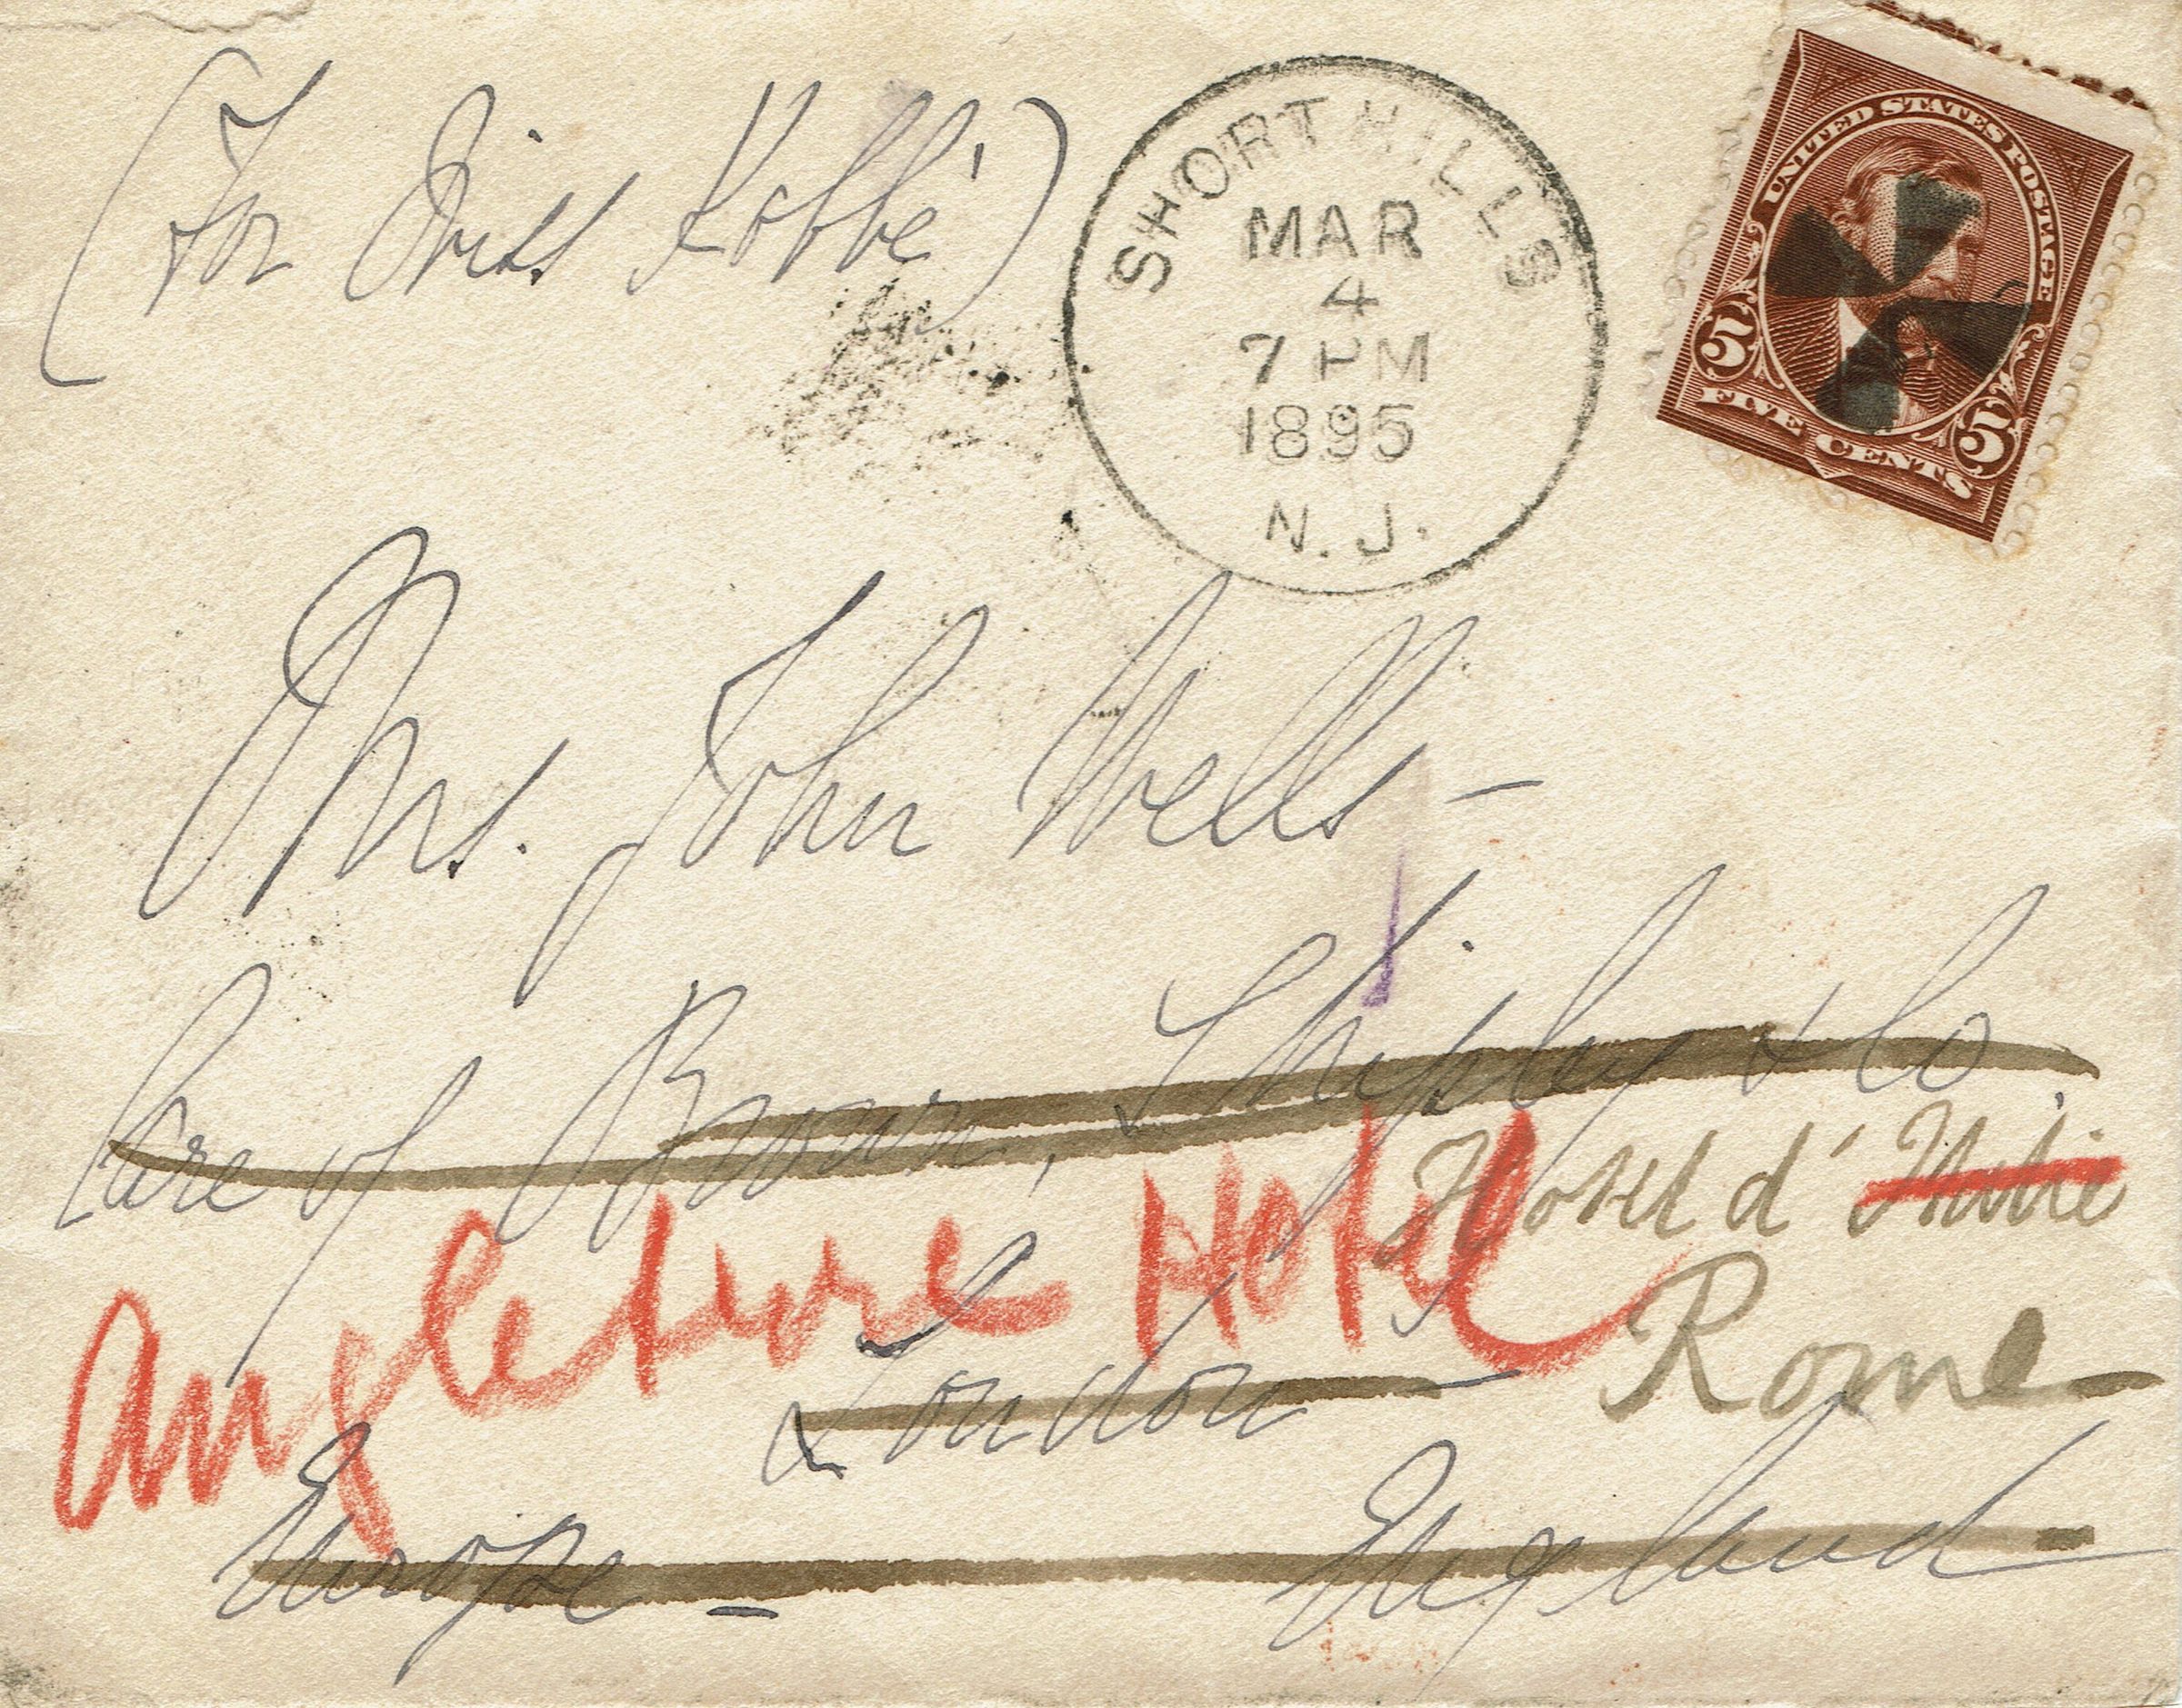 (For Miss Kobbé)
SHORT HILLS
MAR
4
7 PM
1895
N. J.
UNITED STATES POSTAGE
5 5
FIVE CENTS
Mrs. John Wells –
Care of Brown, Shipley & Co.
Hotel d'Italie
Angleture Hotel
Rome –
London –
Europe –
England –